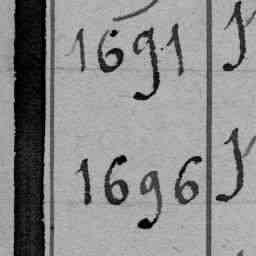 1691
1696